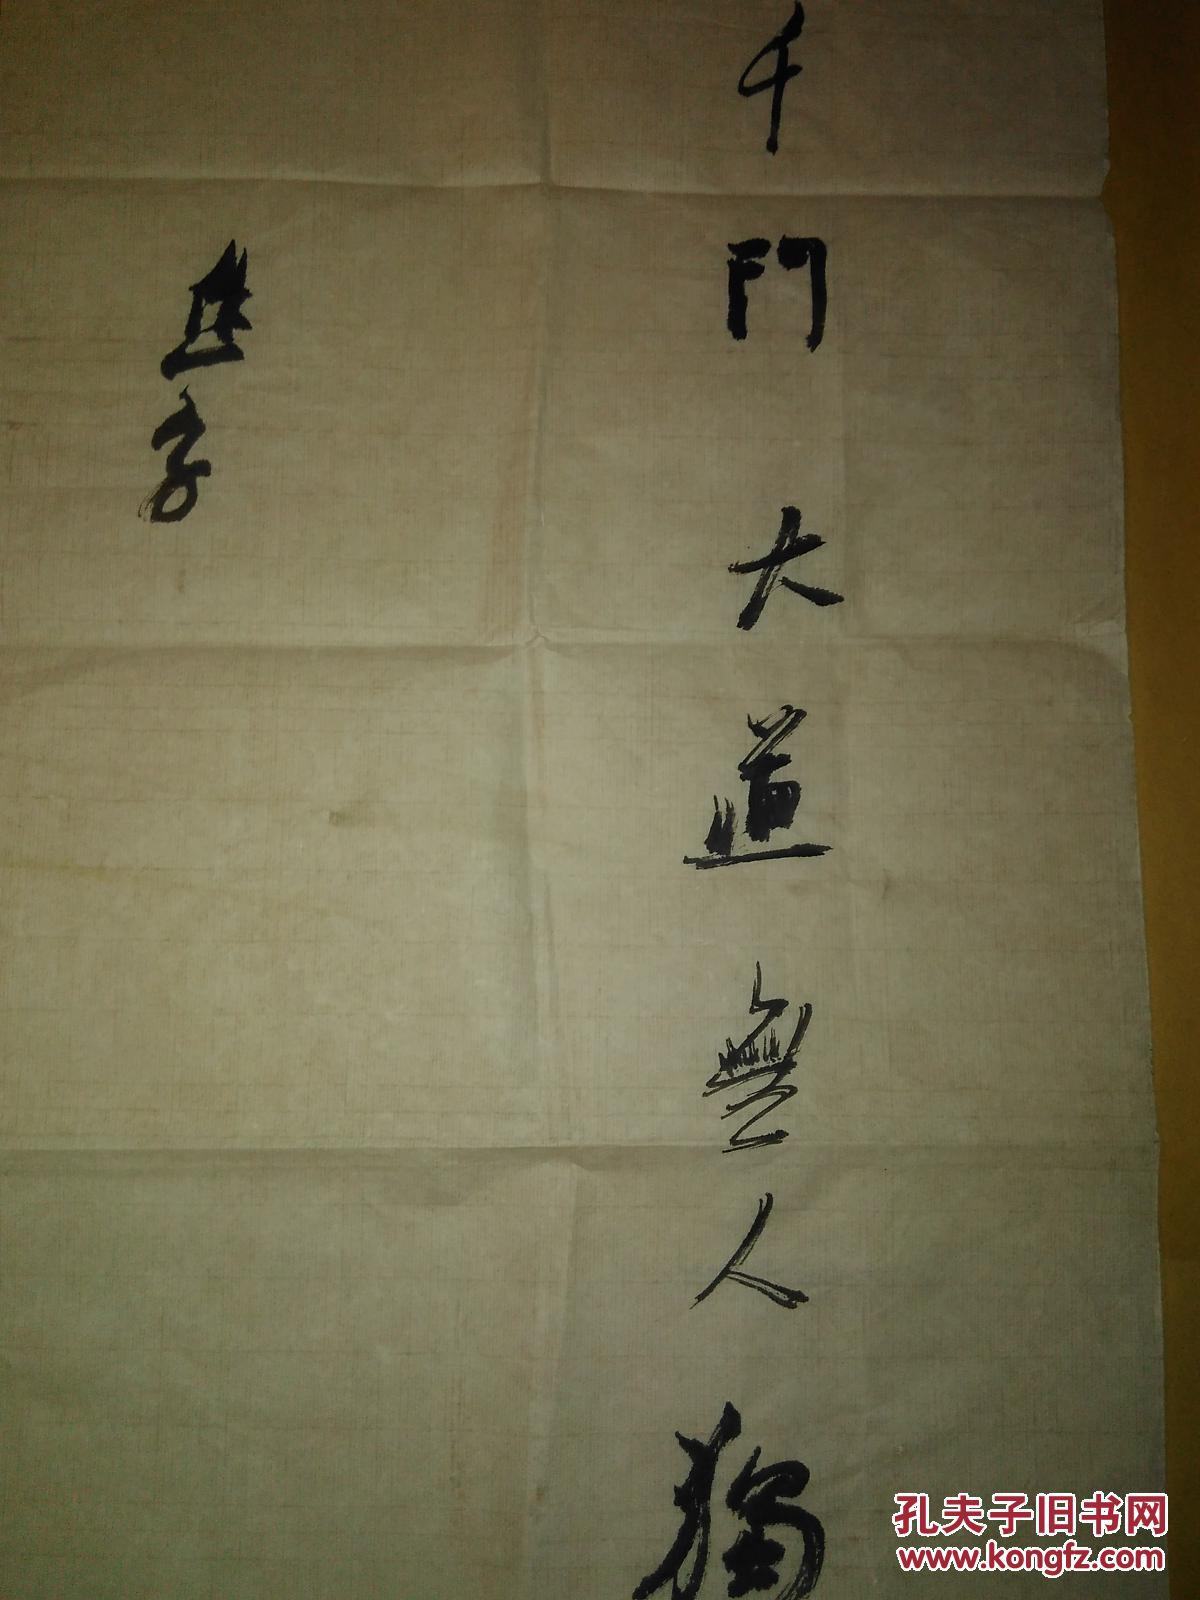 千門大道無人獨
孔夫子旧书网
www.kongfz.com